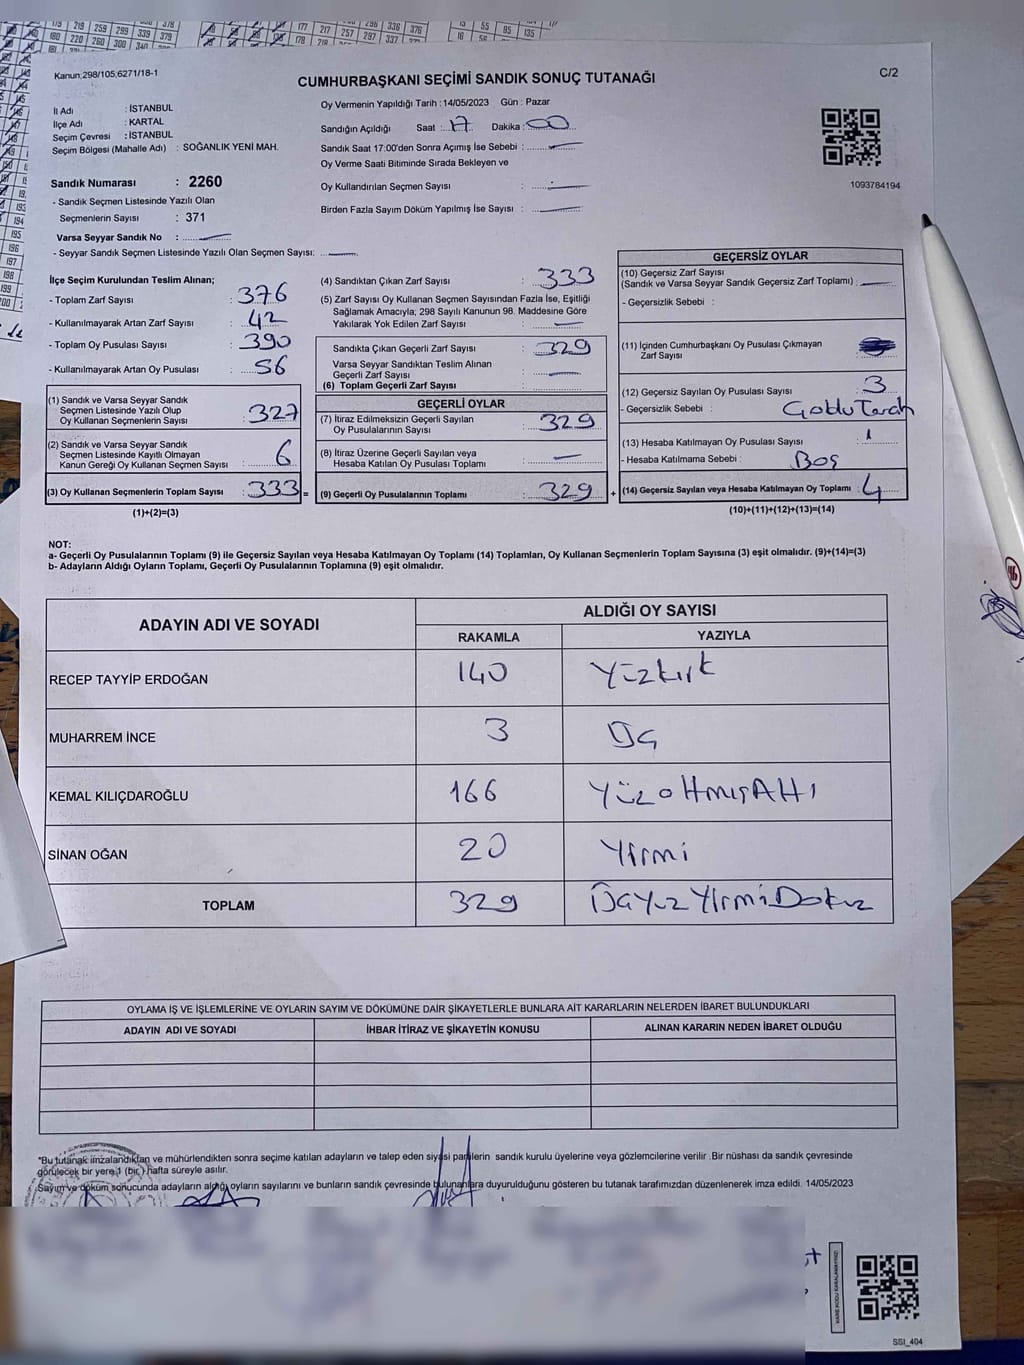 Kanun;298/105;6271/18-1
CUMHURBAŞKANI SEÇİMİ SANDIK SONUÇ TUTANAĞI
C/2
İl Adı : İSTANBUL
İlçe Adı : KARTAL
Seçim Çevresi : İSTANBUL
Seçim Bölgesi (Mahalle Adı) : SOĞANLIK YENİ MAH.
Sandık Numarası : 2260
- Sandık Seçmen Listesinde Yazılı Olan
Seçmenlerin Sayısı : 371
Varsa Seyyar Sandık No :
- Seyyar Sandık Seçmen Listesinde Yazılı Olan Seçmen Sayısı:
Oy Vermenin Yapıldığı Tarih : 14/05/2023 Gün : Pazar
Sandığın Açıldığı Saat : 17 Dakika : 00
Sandık Saat 17:00'den Sonra Açımış İse Sebebi :
Oy Verme Saati Bitiminde Sırada Bekleyen ve
Oy Kullandırılan Seçmen Sayısı :
Birden Fazla Sayım Döküm Yapılmış İse Sayısı :
1093784194
İlçe Seçim Kurulundan Teslim Alınan;
- Toplam Zarf Sayısı : 376
- Kullanılmayarak Artan Zarf Sayısı : 42
- Toplam Oy Pusulası Sayısı : 390
- Kullanılmayarak Artan Oy Pusulası : 56
(1) Sandık ve Varsa Seyyar Sandık
Seçmen Listesinde Yazılı Olup
Oy Kullanan Seçmenlerin Sayısı : 327
(2) Sandık ve Varsa Seyyar Sandık
Seçmen Listesinde Kayıtlı Olmayan
Kanun Gereği Oy Kullanan Seçmen Sayısı : 6
(3) Oy Kullanan Seçmenlerin Toplam Sayısı : 333 =
(1)+(2)=(3)
(4) Sandıktan Çıkan Zarf Sayısı : 333
(5) Zarf Sayısı Oy Kullanan Seçmen Sayısından Fazla İse, Eşitliği
Sağlamak Amacıyla; 298 Sayılı Kanunun 98. Maddesine Göre
Yakılarak Yok Edilen Zarf Sayısı :
Sandıkta Çıkan Geçerli Zarf Sayısı : 329
Varsa Seyyar Sandıktan Teslim Alınan
Geçerli Zarf Sayısı :
(6) Toplam Geçerli Zarf Sayısı :
GEÇERLİ OYLAR
(7) İtiraz Edilmeksizin Geçerli Sayılan
Oy Pusulalarının Sayısı : 329
(8) İtiraz Üzerine Geçerli Sayılan veya
Hesaba Katılan Oy Pusulası Toplamı :
(9) Geçerli Oy Pusulalarının Toplamı : 329 +
GEÇERSİZ OYLAR
(10) Geçersiz Zarf Sayısı
(Sandık ve Varsa Seyyar Sandık Geçersiz Zarf Toplamı) :
- Geçersizlik Sebebi :
(11) İçinden Cumhurbaşkanı Oy Pusulası Çıkmayan
Zarf Sayısı :
(12) Geçersiz Sayılan Oy Pusulası Sayısı : 3
- Geçersizlik Sebebi :
(13) Hesaba Katılmayan Oy Pusulası Sayısı : 1
- Hesaba Katılmama Sebebi : Boş
(14) Geçersiz Sayılan veya Hesaba Katılmayan Oy Toplamı : 4
(10)+(11)+(12)+(13)=(14)
NOT:
a- Geçerli Oy Pusulalarının Toplamı (9) ile Geçersiz Sayılan veya Hesaba Katılmayan Oy Toplamı (14) Toplamları, Oy Kullanan Seçmenlerin Toplam Sayısına (3) eşit olmalıdır. (9)+(14)=(3)
b- Adayların Aldığı Oyların Toplamı, Geçerli Oy Pusulalarının Toplamına (9) eşit olmalıdır.
ADAYIN ADI VE SOYADI
ALDIĞI OY SAYISI
RAKAMLA YAZIYLA
RECEP TAYYİP ERDOĞAN 140 Yüzkırk
MUHARREM İNCE 3 Üç
KEMAL KILIÇDAROĞLU 166 YüzAltmışAltı
SİNAN OĞAN 20 Yirmi
TOPLAM 329 ÜçYüzYirmiDokuz
OYLAMA İŞ VE İŞLEMLERİNE VE OYLARIN SAYIM VE DÖKÜMÜNE DAİR ŞİKAYETLERLE BUNLARA AİT KARARLARIN NELERDEN İBARET BULUNDUKLARI
ADAYIN ADI VE SOYADI İHBAR İTİRAZ VE ŞİKAYETİN KONUSU ALINAN KARARIN NEDEN İBARET OLDUĞU
"Bu tutanak imzalandıktan ve mühürlendikten sonra seçime katılan adayların ve talep eden siyasi partilerin sandık kurulu üyelerine veya gözlemcilerine verilir .Bir nüshası da sandık çevresinde
görülecek bir yere 1 (bir ) hafta süreyle asılır.
Sayım ve döküm sonucunda adayların aldığı oyların sayılarını ve bunların sandık çevresinde bulunanlara duyurulduğunu gösteren bu tutanak tarafımızdan düzenlenerek imza edildi. 14/05/2023
SSI_404